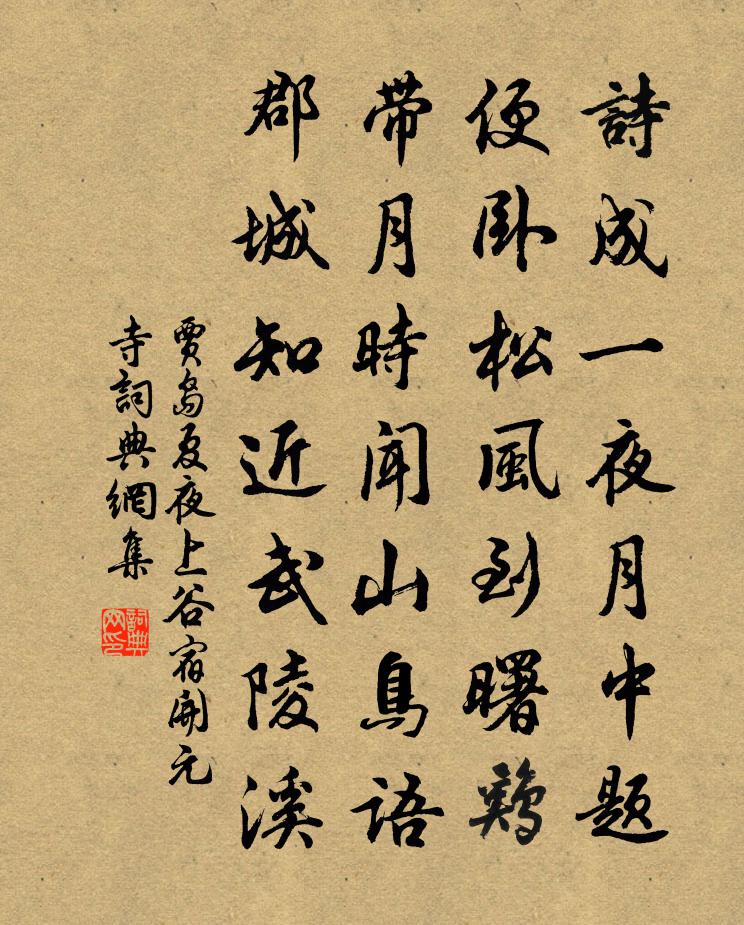 詩成一夜月中題
便卧松風到曙鷄
帶月時聞山鳥語
郡城知近武陵溪
賈島夏夜上谷宿開元
寺詞典網集
詞典
网印